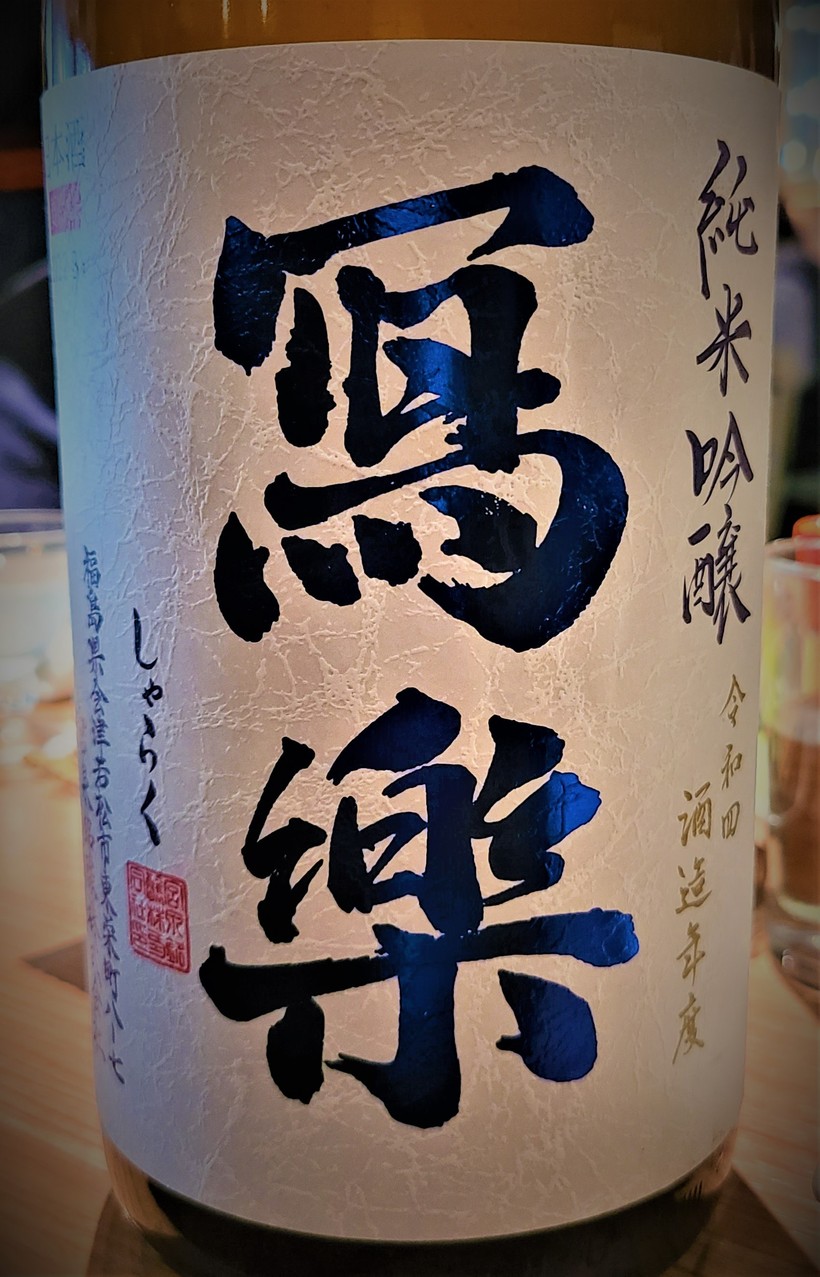 純米吟醸
令和四
酒造年度
寫樂
しゃらく
福島県会津若松市東栄町八ー七
本酒